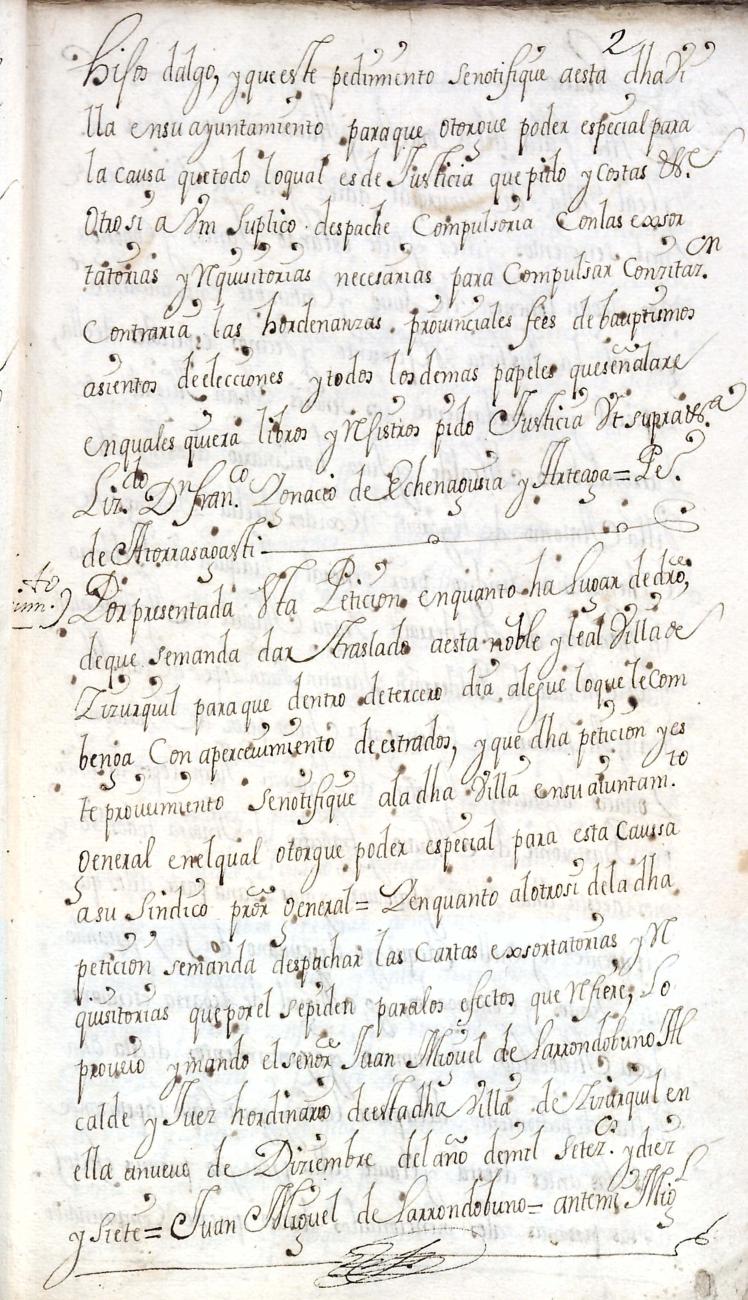 2
hisos dalgo, y que este pedimiento se notifique a esta dha Vi
lla en su ayuntamiento para que otorgue poder especial para
la causa que todo lo qual es de Justicia que pido y costas &ª.
Otro si a Vm suplico despache Compulsoria Con las exsor
tatorias y Requisitorias necesarias para Compulsar Conzitazon.
Contraria las hordenanzas provinçiales fees de bauptismos
asientos de elecciones y todos los demas papeles que señalare
en quales quiera libros y Refistros pido Justicia Ut supra &ª
Lizdo. Dn franco. Ignacio de Echenagusia y Arteaga = Pe.
de Atorrasagasti
Por presentada Esta Peticion en quanto ha lugar de dro,
de que se manda dar Traslado a esta noble y leal Villa de
Zizurquil para que dentro de tercero dia alegue lo que le Com
benga Con apercevimiento de estrados, y que dha peticion y es
te proveimiento se notifique a la dha Villa en su aiuntamto.
General en el qual otorgue poder especial para esta Caussa
a su Sindico pror General = Y en quanto al otrosi de la dha
peticion se manda despachar las Cartas exsortatorias y Re
quisitorias que por el se piden para los efectos que Refiere, Lo
proveio y mando el señor Juan Miguel de Larrondobuno Al
calde y Juez hordinario de esta dha Villa de Zizurquil en
ella a nueve de Diziembre del año de mil Setezos. y diez
y Siete = Juan Miguel de Larrondobuno = ante mi Migl